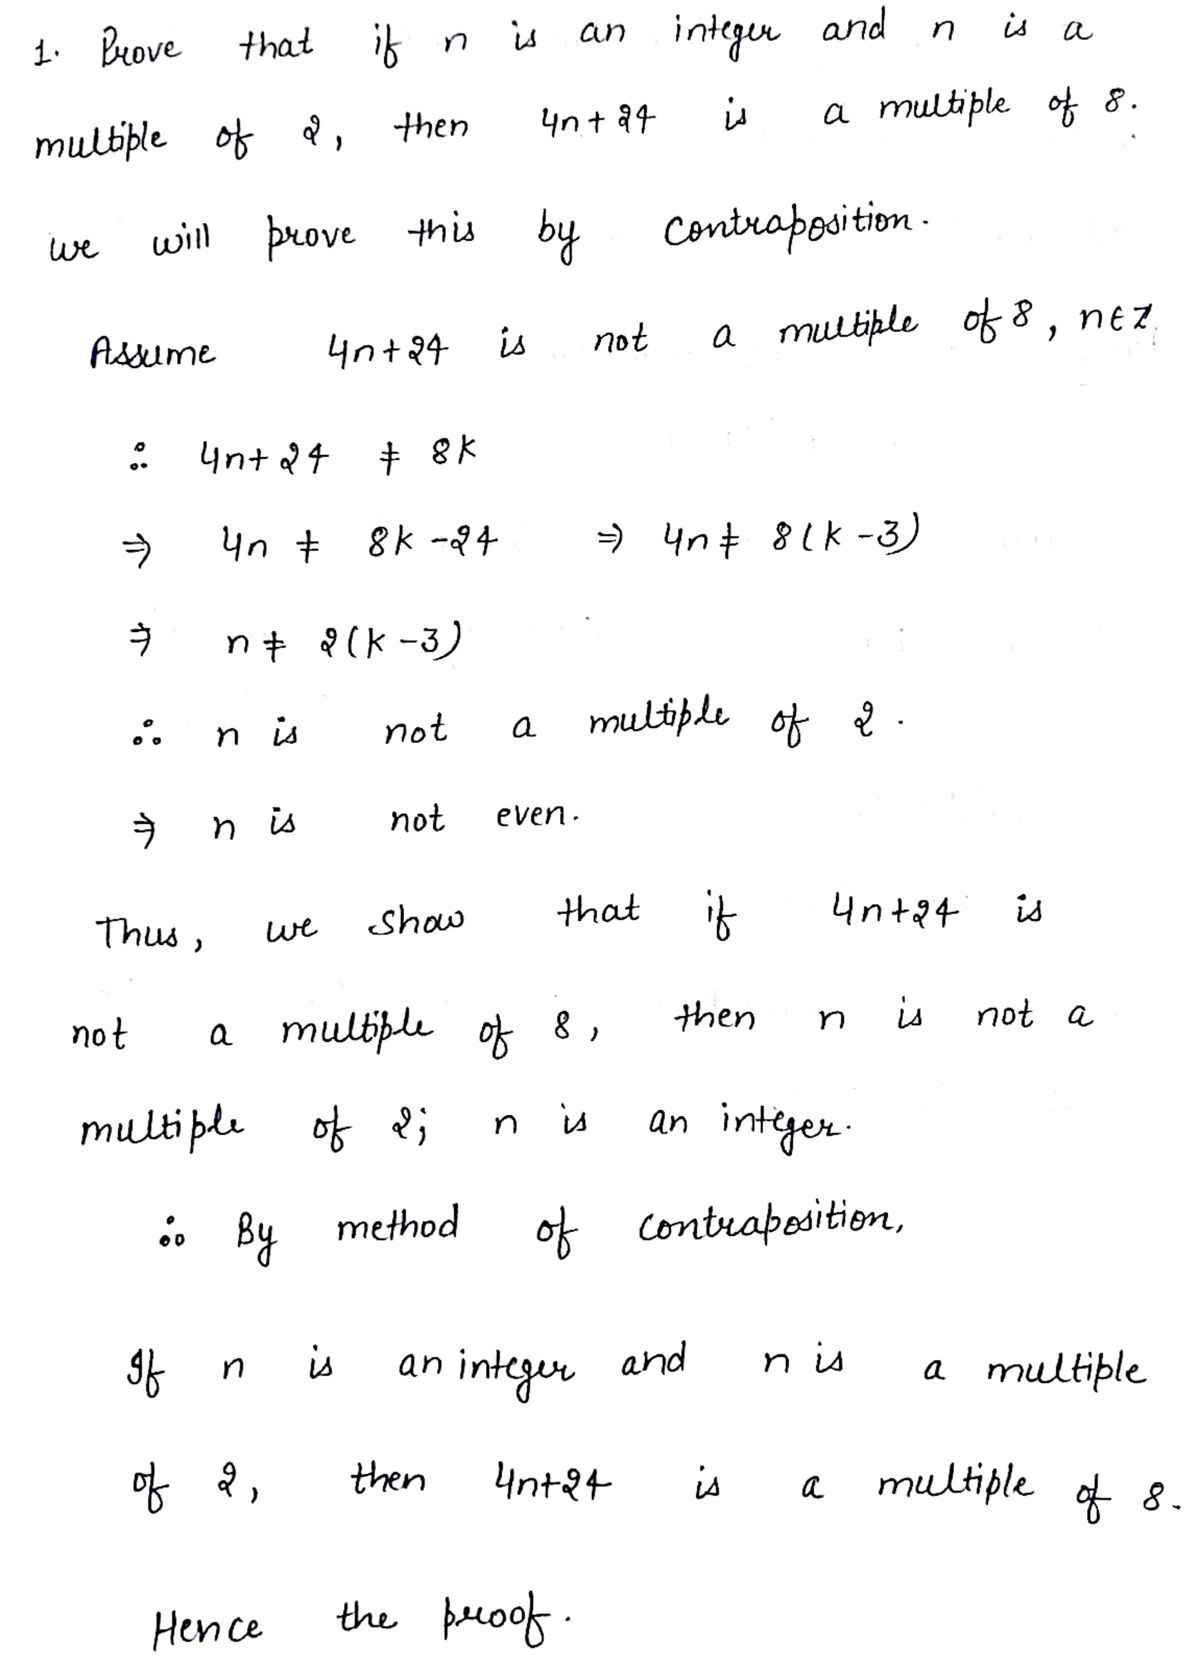 1. Prove that if n is an integer and n is a
multiple of 2, then 4n+24 is a multiple of 8.
we will prove this by contraposition.
Assume 4n+24 is not a multiple of 8, n∈Z
∴ 4n+24 ≠ 8k
⇒ 4n ≠ 8k-24 ⇒ 4n ≠ 8(k-3)
⇒ n ≠ 2(k-3)
∴ n is not a multiple of 2.
⇒ n is not even.
Thus, we show that if 4n+24 is
not a multiple of 8, then n is not a
multiple of 2; n is an integer.
∴ By method of contraposition,
If n is an integer and n is a multiple
of 2, then 4n+24 is a multiple of 8.
Hence the proof.